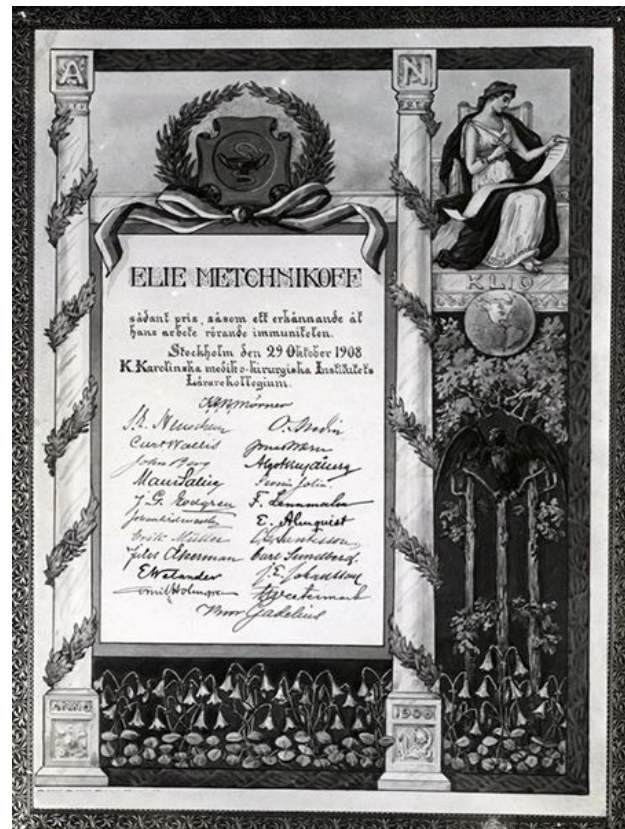 A N
KLIO
ELIE METCHNIKOFF
sådant pris, såsom ett erkännande åt
hans arbete rörande immuniteten.
Stockholm den 29 Oktober 1908
K. Karolinska mediko-kirurgiska Institutets
Lärarekollegium.
Mörner
O. Medin
Curt Wallis Jonas Wærn
John Berg
J. G. Edgren F. Lennmalm
E. Almquist
Erik Müller
Jules Åkerman Carl Sundberg.
E Welander J. E. Johansson
Emil Holmgren Westermark
Gadelius
ANNO 1908